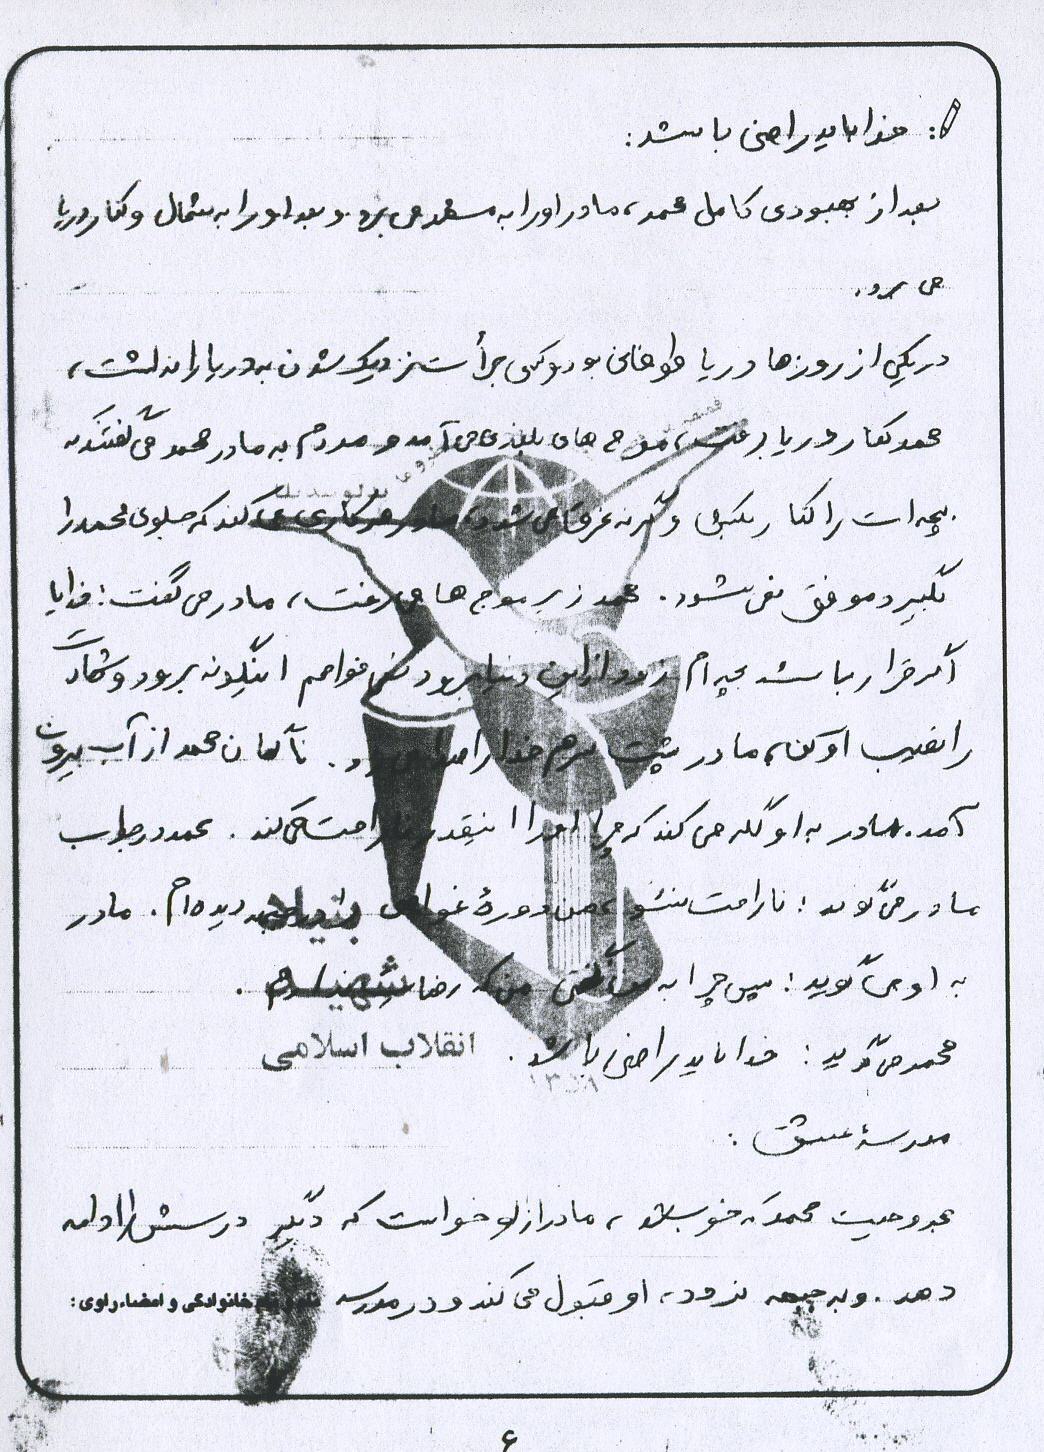 خدا باید راضی باشد:
بعد از بهبودی کامل محمد، مادر او را به مشهد می برد و بعد او را به شمال و کنار دریا
می برد.
در یکی از روزها دریا طوفانی بود و کسی جرأت نزدیک شدن به دریا را نداشت،
محمد کنار دریا رفت، موج های بلندی می آمد و مردم به مادر محمد می گفتند به
بچه ات را کنار بکش وگرنه غرق می شود، مادر هر کاری می کند که جلوی محمد را
بگیرد موفق نمی شود. محمد زیر موج ها می رفت، مادر می گفت: خدایا
اگر قرار باشد بچه ام زود از این دنیا برود نمی خواهم اینگونه برود و شهادت
را نصیب او کن، مادر پشت سرهم خدا را صدا می زد. ناگهان محمد از آب بیرون
آمد. مادر به او گله می کند که چرا او را اینقدر ناراحت می کند. محمد در جواب
مادر می گوید: ناراحت نشو، من دورهٔ غواصی دیده ام. مادر
به او می گوید: پس چرا به من نگفتی من که رضایت دارم.
محمد می گوید: خدا باید راضی باشد.
بنیاد
شهید
انقلاب اسلامی
۱۳۵۸
مدرسهٔ عشق:
مجروحیت محمد که خوب شد، مادر از او خواست که دیگر درسش را ادامه
دهد. و به جبهه نرود، او قبول می کند و در مدرسه
نام و نام خانوادگی و امضاء راوی:
۶